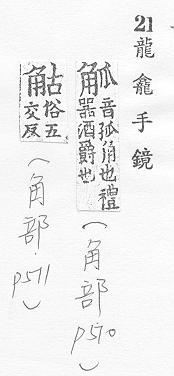 21 龍龕手鏡
觚音孤角也禮
器酒爵也
(角部 p510)
俗五
交反
(角部·p511)